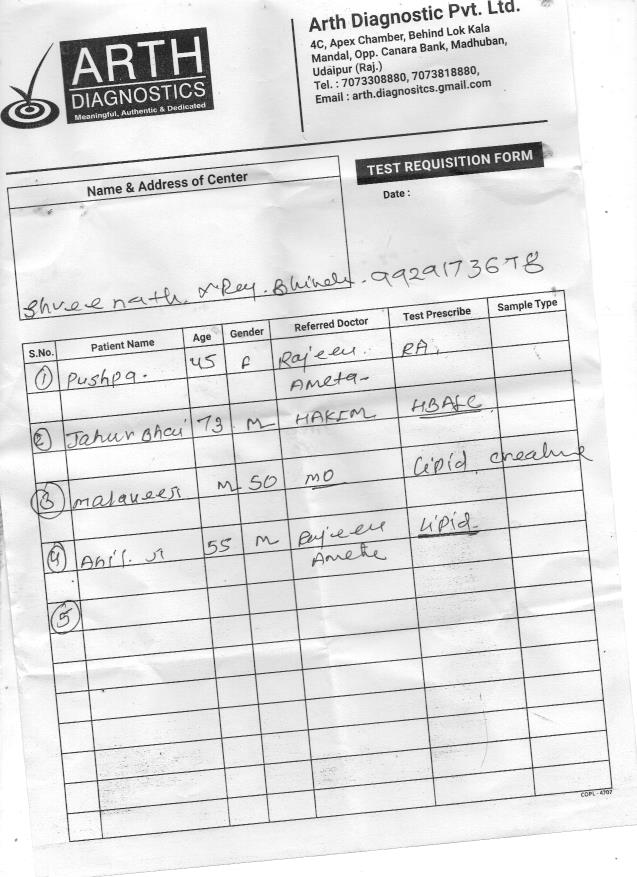 ARTH
DIAGNOSTICS
Meaningful, Authentic & Dedicated
Arth Diagnostic Pvt. Ltd.
4C, Apex Chamber, Behind Lok Kala
Mandal, Opp. Canara Bank, Madhuban,
Udaipur (Raj.)
Tel. : 7073308880, 7073818880,
Email : arth.diagnositcs.gmail.com
Name & Address of Center
TEST REQUISITION FORM
Date :
Shree nath. Bhinder. 9929173678
S.No. Patient Name Age Gender Referred Doctor Test Prescribe Sample Type
1 Pushpa. 45 F Rajeev. RA.
Ameta-
2 Jahur Bhai 73 M HAKIM HBA1C
3 M 50 MO Lipid
4 55 M Rajeev Lipid
Ameta
5
COPL - 4707